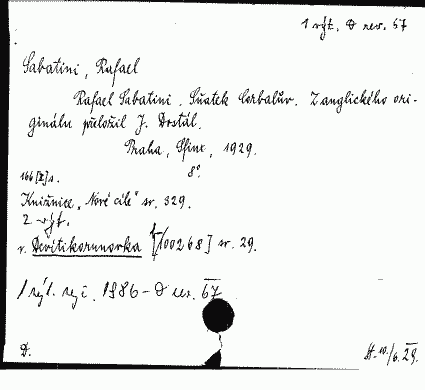 1 výt. D rev. 67
Sabatini, Rafael
Rafael Sabatini. Sňatek Corbalův. Z anglického ori-
ginálu přeložil J. Dostál.
Praha, Sfinx, 1929.
8°.
166 [II] s.
Knižnice „Nové cíle" sv. 329.
2 výt.
v. Devítikorunovka [100268] sv. 29.
1 výt. 1986 - D rev. 67
D.
St. 10./6. 29.